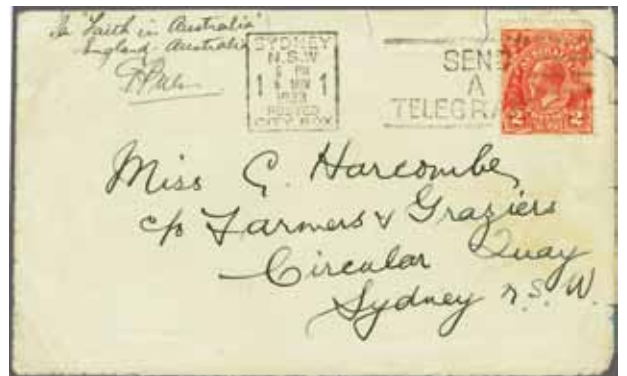 "Faith in Australia"
England - Australia
SYDNEY
N.S.W
1 1
1933
POSTED
CITY BOX
SEND
A
TELEGRA
2 2
Miss G. Harcombe,
c/o Farmers & Graziers
Circular Quay
Sydney N.S.W.